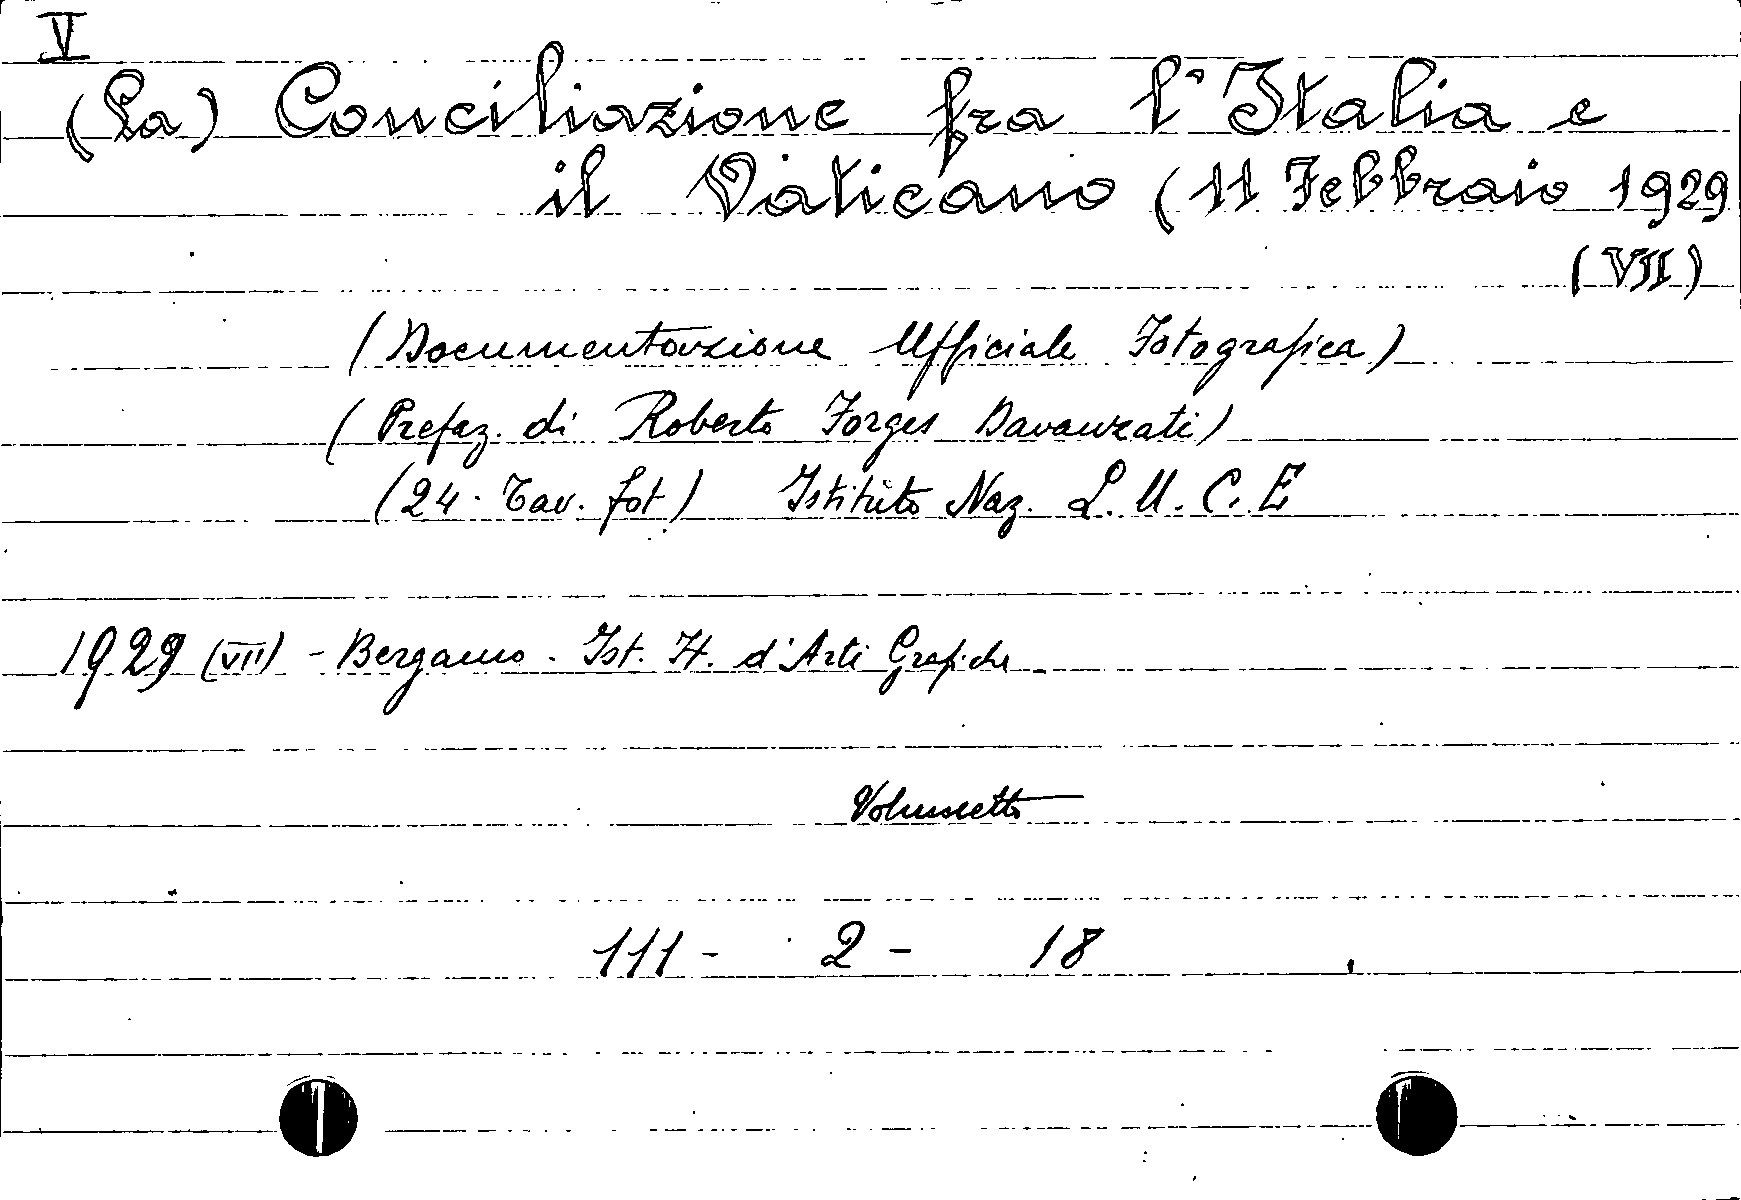 V
(La) Conciliazione fra l'Italia e
il Vaticano (11 Febbraio 1929
(VII)
(Documentazione Ufficiale Fotografica)
(Prefaz. di Roberto Forges Davanzati)
(24. Tav. fot) Istituto Naz. L. U. C. E
1929 (VII) - Bergamo. Ist. It. d'Arti Grafiche
Volumetto
111 - 2 - 18